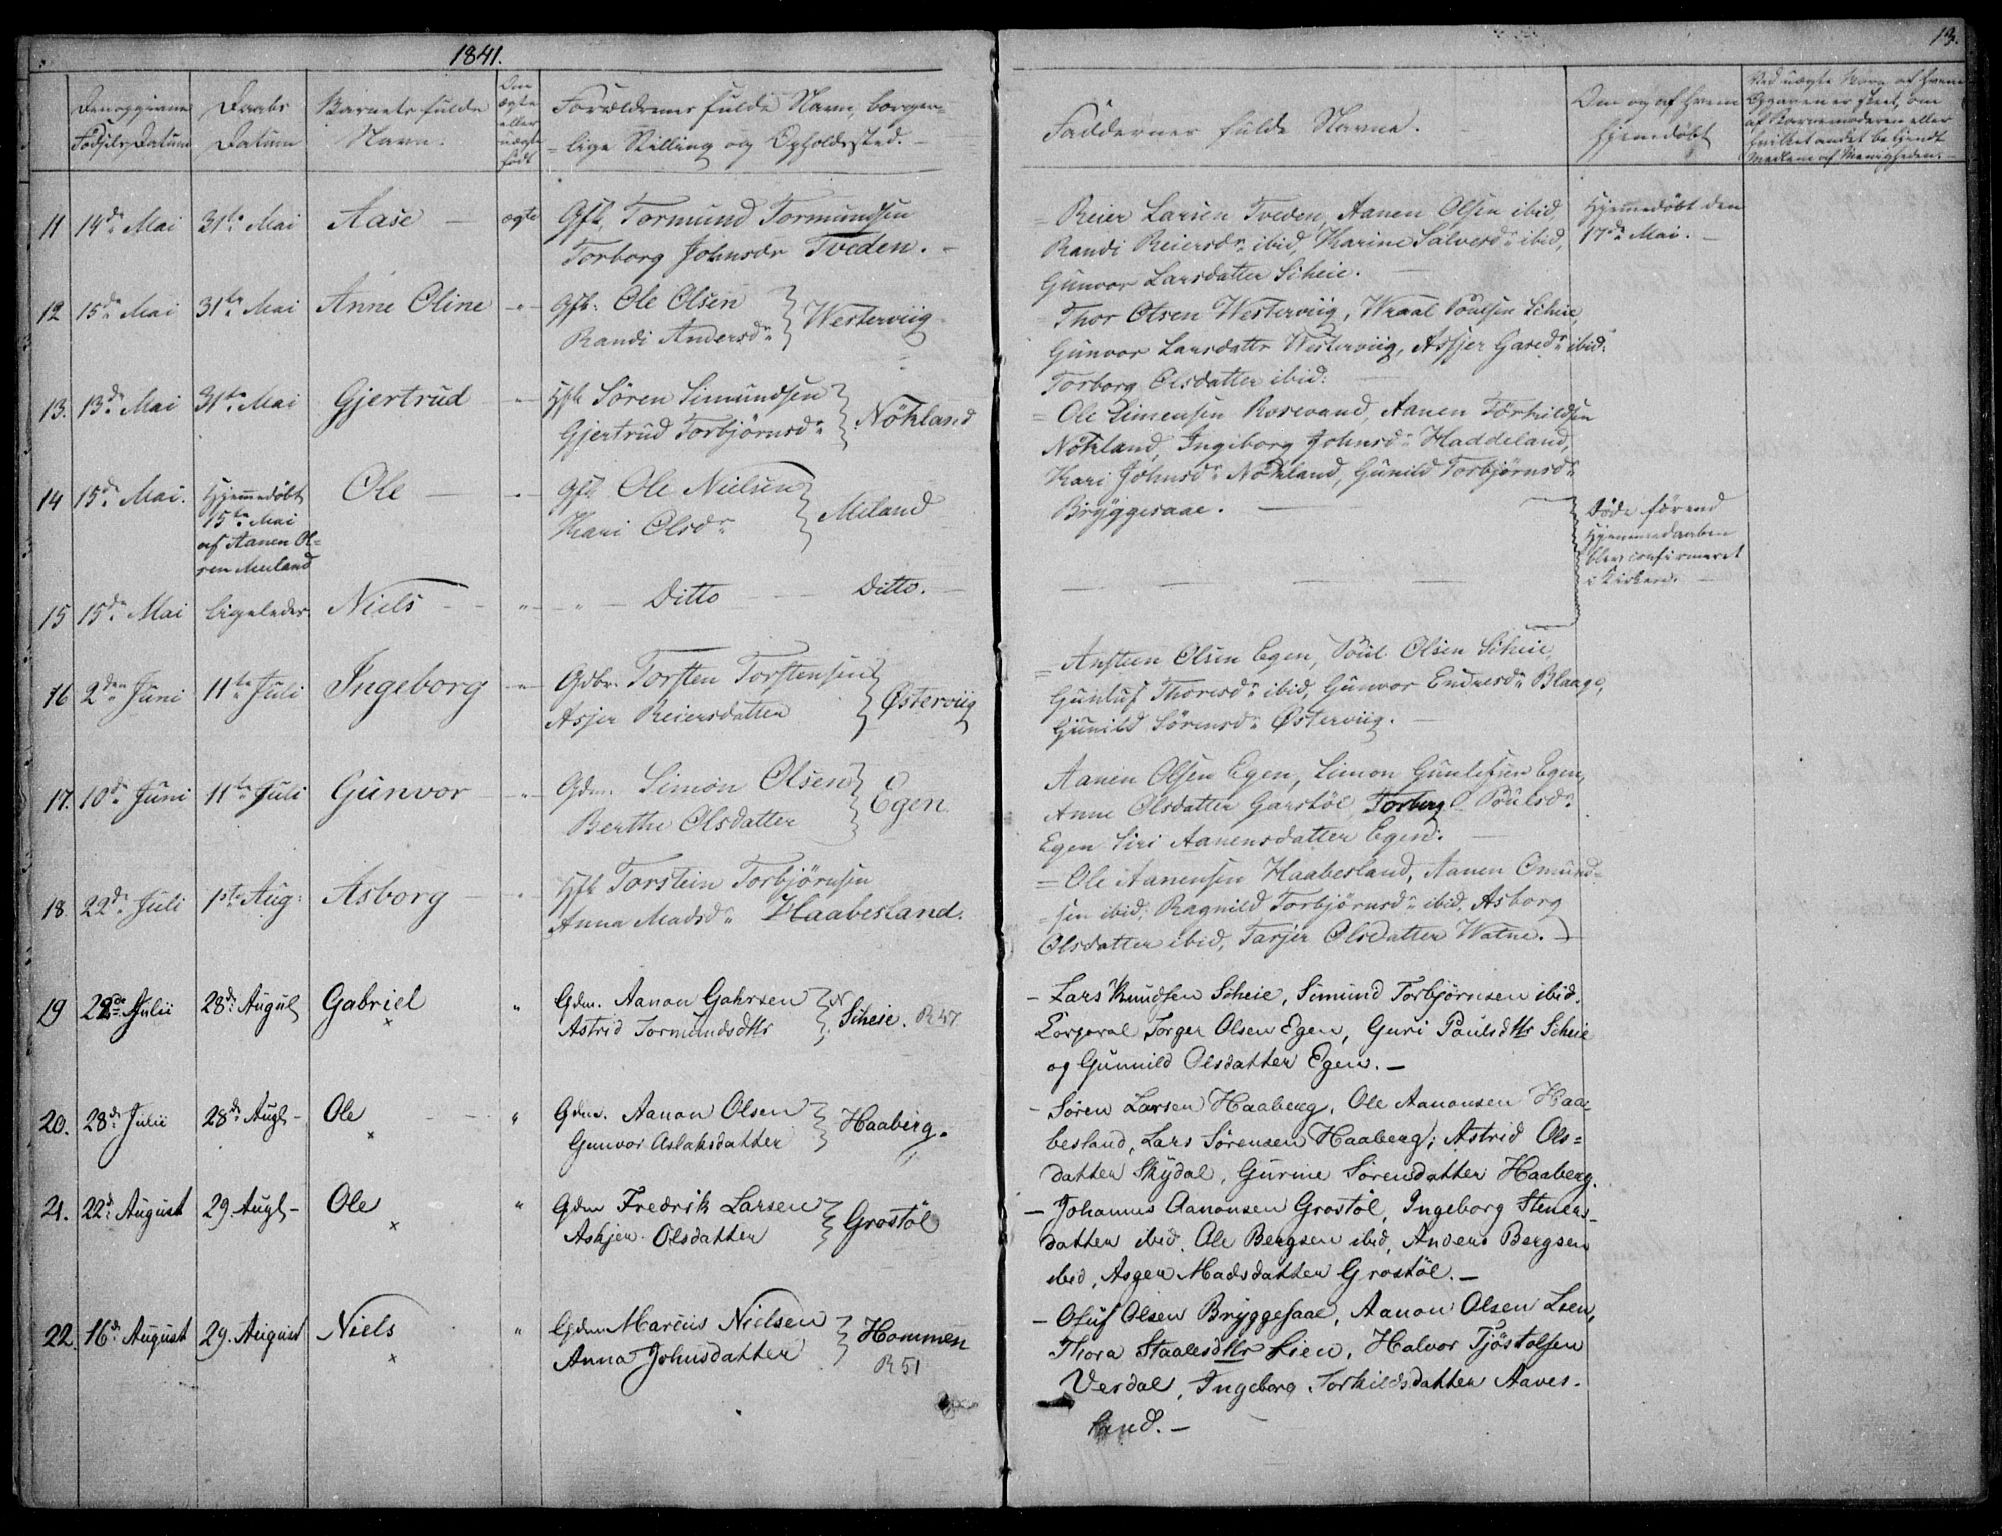 1841.
13.
Den oggivne Fødsels Datum
Daabs Datum
Barnets fulde Navn.
Om ægte eller uægte født
Forældrenes fulde Navn, borger-
lige Stilling og Opholdssted.
Faddernes fulde Navne.
Om og af hvem hjemedøbt
11 14de Mai 31te Mai Aase ægte Gfk. Tormund Tormundsen
Torborg Johnsdr Tveden.
Reier Larsen Tveden, Aanen Olsen ibid,
Randi Reiersdr ibid, Karine Salvesdr ibid,
Gunvor Larsdatter Scheie.
Hjemedøbt den
17de Mai.
12 15de Mai 31te Mai Anne Oline Gfk. Ole Olsen
Randi Andersdr Westerviig
Thor Olsen Westerviig, Wraal Poulsen Scheie,
Gunvor Larsdattr Westerviig, Assjer ibid:
Torborg Olsdatter ibid:
13. 13de Mai 31te Mai Gjertrud Hfk Søren Simundsen
Gjertrud Torbjørnsdr Nökland
Ole Simensen Rosevand, Aanen Torkildsen
Nökland, Ingiborg Johnsdr Haddeland,
Kari Johnsdr Nökland, Gunild Torbjørnsdr
Bryggesaae.
14 15de Mai. Hjemmedøbt
15te Mai
af Aanen Ol-
sen Meeland
Ole Gfk Ole Nielsen
Kari Olsdr Meland
Døde førend
Hjemmedaaben
blev confirmeret
i Kirken.
15 15de Mai Ligeledes. Niels " " Ditto Ditto.
16 2den Juni 11te Juli Ingeborg Gdbr. Torsten Torstensen
Asjer Reiersdatter Østerviig
Ansteen Olsen Egen, Poul Olsen Scheie,
Gunluf Thoresdr ibid, Gunvor Endresdr Blaage,
Gunild Sørensdr Østerviig.
17. 10de Juni 11te Juli Gunvor Gdm. Simon Olsen
Berthe Olsdatter Egen
Aanen Olsen Egen, Simon Gunlefsen Egen,
Anne Olsdatter Garstöl, Torberg Poulsdr
Egen Siri Aanensdatter Egen.
18. 22de Juli 1ste Aug: Asborg Hfk Torstein Torbjørnsen
Anna Madsdr Haabesland.
Ole Aanensen Haabesland, Aanen Omund-
sen ibid, Ragnild Torbjørnsdr ibid, Asborg
Olsdatter ibid, Tarjer Olsdatter Watne.
19 22de Julii 28de August Gabriel " Gdm. Aanon Gahrsen
Astrid Tormundsdttr Scheie. R 47
Lars Knudsen Scheie, Simund Torbjørnsen ibid.
Corporal Torger Olsen Egen, Guri Paulsdttr Scheie
og Gunnild Olsdatter Egen.
20. 28de Julii 28de Augt Ole " Gdm. Aanon Olsen
Gunvor Aslaksdatter Haaberg.
Søren Larsen Haaberg, Ole Aanonsen Haa-
besland, Lars Sørensen Haaberg; Astrid Ols=
datter Skydal, Gurine Sørensdatter Haaberg.
21. 22de August 29. Augt Ole " Gdm Fredrik Larsen
Askjer Olsdatter Grostöl
Johannes Aanonsen Grostöl, Ingeborg Steners-
datter ibid, Ole Bergsen ibid, Anders Bergsen
ibid, Asger Madsdatter Grostöl.
22. 16de August 29. August Niels " Gdm Marcus Nielsen
Anna Johnsdatter Hommen
R 51
Oluf Olsen Bryggesaae, Aanon Olsen Lien,
Thora Staalesdttr Lien, Halvor Tjöstolsen
Verdal, Ingeborg Torkildsdatter Aaves-
land.